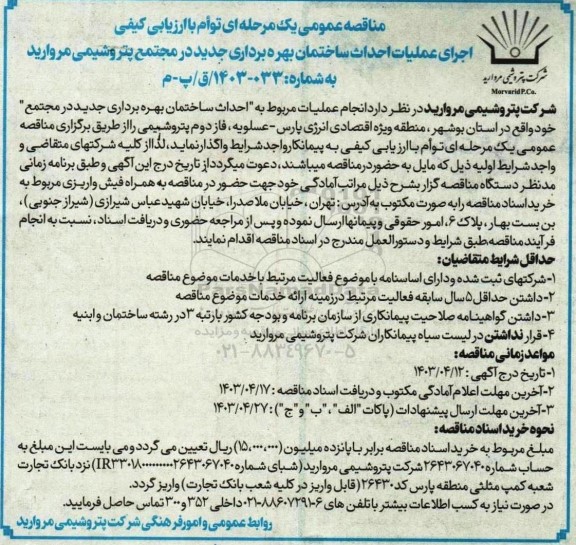 مناقصه عمومی یک مرحله ای توأم با ارزیابی کیفی
اجرای عملیات احداث ساختمان بهره برداری جدید در مجتمع پتروشیمی مروارید
به شماره: ۰۳۳-۱۴۰۳/ق/پ-م
شرکت پتروشیمی مروارید
Morvarid P.Co.
شرکت پتروشیمی مروارید در نظر دارد انجام عملیات مربوط به "احداث ساختمان بهره برداری جدید در مجتمع"
خود واقع در استان بوشهر، منطقه ویژه اقتصادی انرژی پارس-عسلویه، فاز دوم پتروشیمی را از طریق برگزاری مناقصه
عمومی یک مرحله ای توأم با ارزیابی کیفی به پیمانکار واجد شرایط واگذار نماید، لذا از کلیه شرکتهای متقاضی و
واجد شرایط اولیه ذیل که مایل به حضور در مناقصه میباشند، دعوت میگردد از تاریخ درج این آگهی و طبق برنامه زمانی
مدنظر دستگاه مناقصه گزار بشرح ذیل مراتب آمادگی خود جهت حضور در مناقصه به همراه فیش واریزی مربوط به
خرید اسناد مناقصه را به صورت مکتوب به آدرس: تهران، خیابان ملاصدرا، خیابان شهید عباس شیرازی (شیراز جنوبی)،
بن بست بهار، پلاک ۶، امور حقوقی و پیمانها ارسال نموده و پس از مراجعه حضوری و دریافت اسناد، نسبت به انجام
فرآیند مناقصه طبق شرایط و دستورالعمل مندرج در اسناد مناقصه اقدام نمایند.
حداقل شرایط متقاضیان:
۱-شرکتهای ثبت شده و دارای اساسنامه با موضوع فعالیت مرتبط با خدمات موضوع مناقصه
۲-داشتن حداقل ۵ سال سابقه فعالیت مرتبط در زمینه ارائه خدمات موضوع مناقصه
۳-داشتن گواهینامه صلاحیت پیمانکاری از سازمان برنامه و بودجه کشور با رتبه ۳ در رشته ساختمان و ابنیه
۴-قرار نداشتن در لیست سیاه پیمانکاران شرکت پتروشیمی مروارید
ParsNamadData
۰۲۱-۸۸۳۴۹۶۷۰-۵
مواعد زمانی مناقصه:
۱-تاریخ درج آگهی: ۱۴۰۳/۰۴/۱۲
۲-آخرین مهلت اعلام آمادگی مکتوب و دریافت اسناد مناقصه: ۱۴۰۳/۰۴/۱۷
۳-آخرین مهلت ارسال پیشنهادات (پاکات "الف"، "ب" و "ج"): ۱۴۰۳/۰۴/۲۷
نحوه خرید اسناد مناقصه:
مبلغ مربوط به خرید اسناد مناقصه برابر با پانزده میلیون (۱۵,۰۰۰,۰۰۰) ریال تعیین می گردد و می بایست این مبلغ به
حساب شماره ۲۶۴۳۰۶۷۰۴۰ شرکت پتروشیمی مروارید (شبای شماره IR۳۳۰۱۸۰۰۰۰۰۰۰۰۰۰۲۶۴۳۰۶۷۰۴۰) نزد بانک تجارت
شعبه کمپ مثلثی منطقه پارس کد ۲۶۴۳۰ (قابل واریز در کلیه شعب بانک تجارت) واریز گردد.
در صورت نیاز به کسب اطلاعات بیشتر با تلفن های ۶-۰۲۱-۸۸۶۰۷۲۹۱ داخلی ۳۵۲ و ۳۰۰ تماس حاصل فرمایید.
روابط عمومی و امور فرهنگی شرکت پتروشیمی مروارید